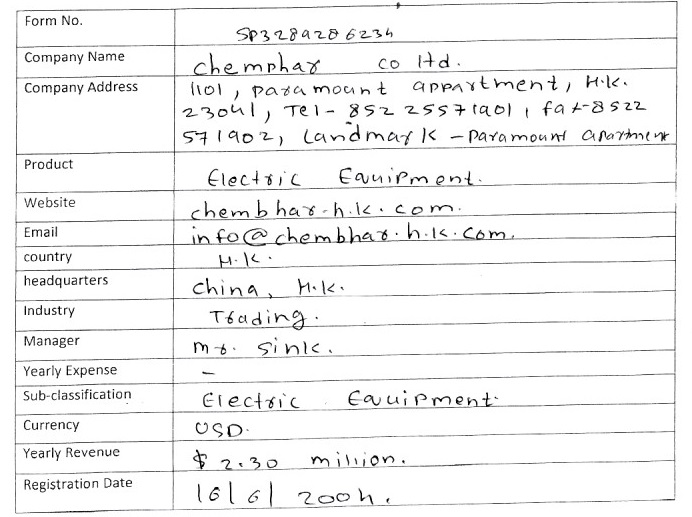 Form No. SP3289286234
Company Name chemphar co ltd.
Company Address 1101, paramount appartment, H.k.
23041, Tel- 852 25571901, fax-8522
571902, Landmark - Paramount apartment
Product Electric Equipment.
Website chembhar.h.k.com.
Email info@chembhar.h.k.com.
country H.k.
headquarters china, H.k.
Industry Trading.
Manager mr. sink.
Yearly Expense -
Sub-classification Electric Equipment.
Currency USD.
Yearly Revenue $ 2.30 million.
Registration Date 16/6/2004.